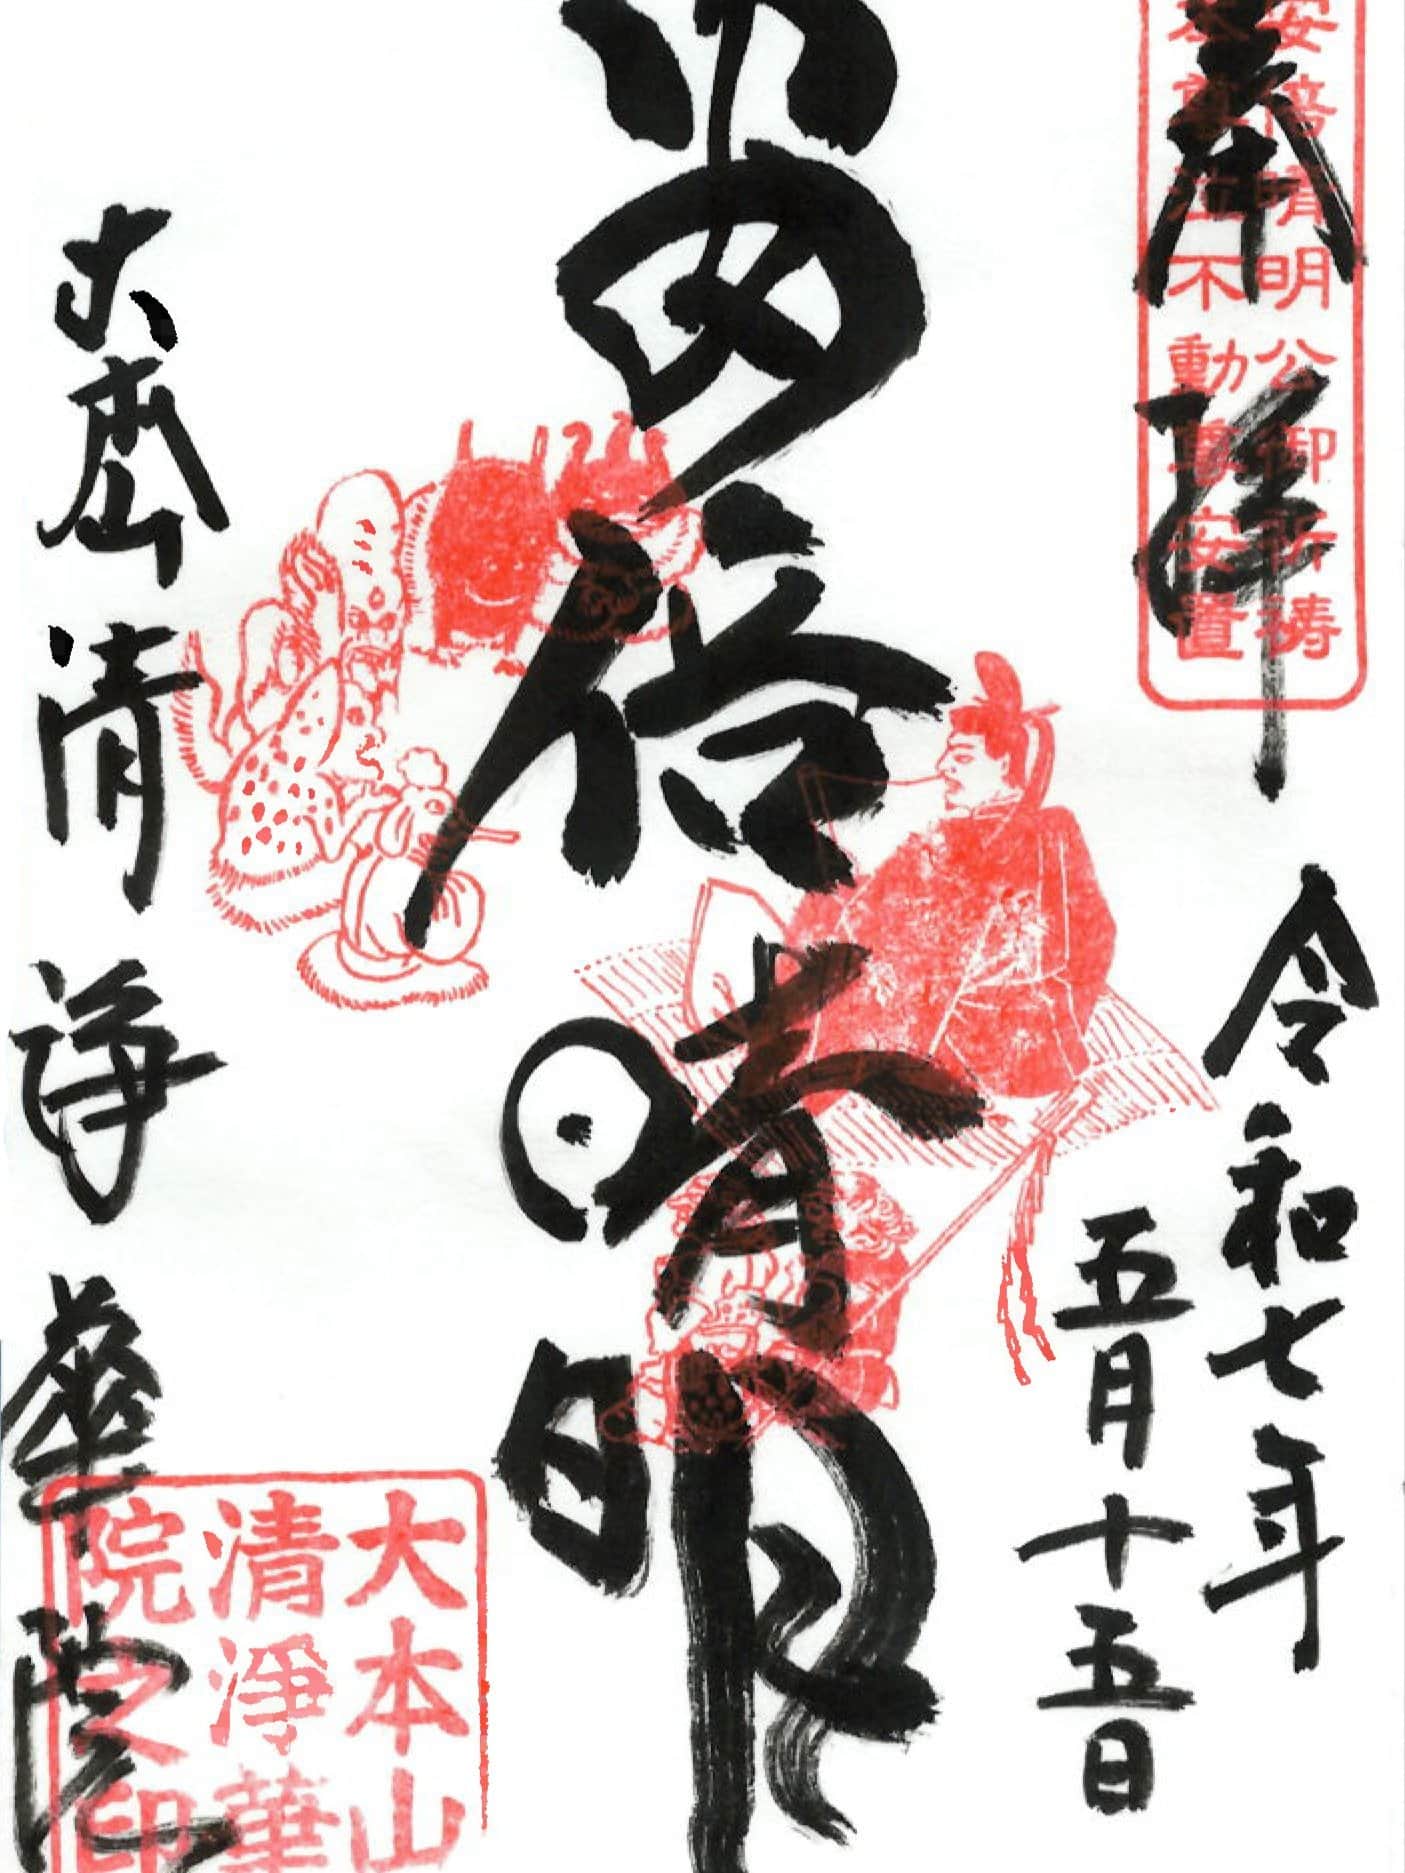 奉拝
安倍晴明公御祈祷
本尊泣不動尊安置
令和七年
五月十五日
安倍晴明
大本山清浄華院
大本山
清淨華
院之印